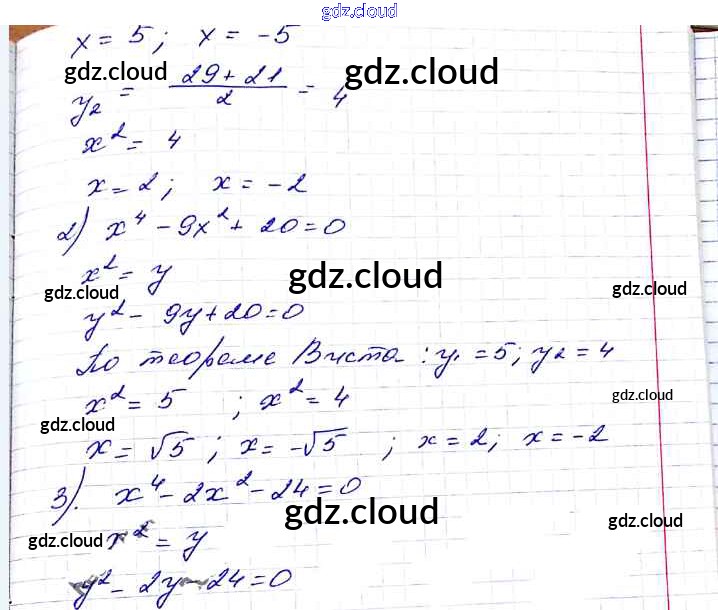 gdz.cloud
x = 5; x = -5
gdz.cloud
y₂ = (29+21)/2 = 4
gdz.cloud
x² = 4
x = 2; x = -2
2) x⁴ - 9x² + 20 = 0
x² = y
gdz.cloud
gdz.cloud
gdz.cloud
y² - 9y + 20 = 0
По теореме Виета: y₁ = 5; y₂ = 4
gdz.cloud
x² = 5 ; x² = 4
gdz.cloud
x = √5 ; x = -√5 ; x = 2; x = -2
3). x⁴ - 2x² - 24 = 0
gdz.cloud
gdz.cloud
gdz.cloud
x² = y
y² - 2y - 24 = 0